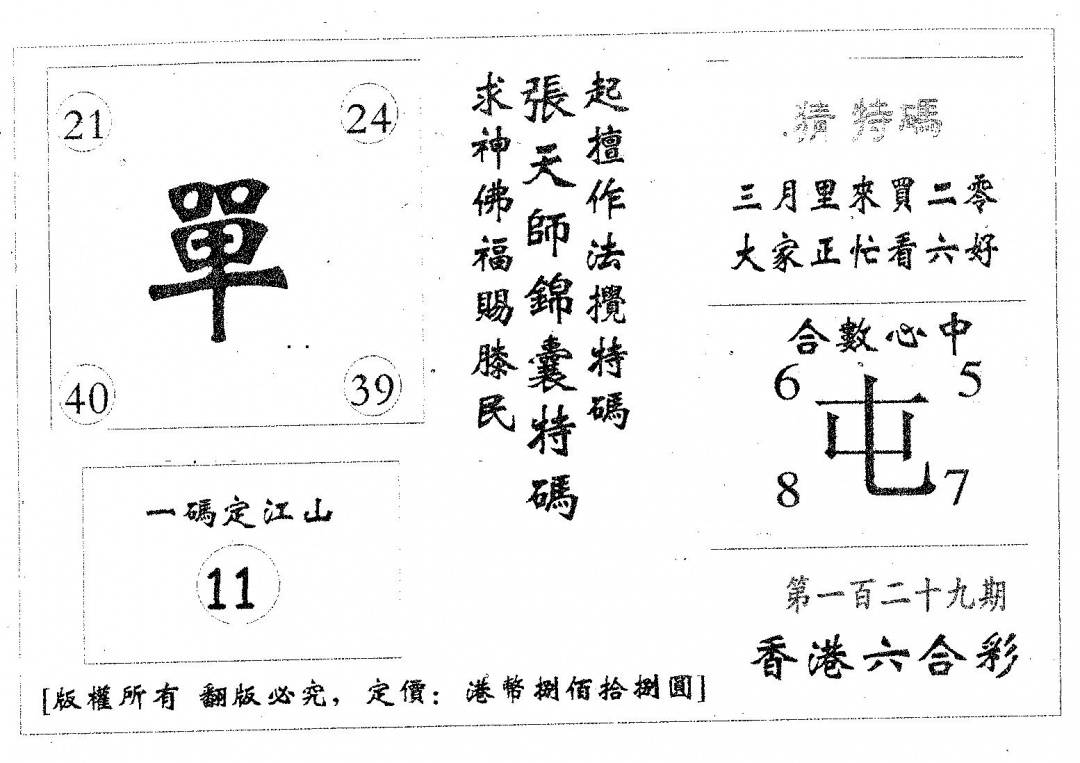 21
24
單
40
39
一碼定江山
11
起擅作法攪特碼
張天師錦囊特碼
求神佛福賜滕民
猜特碼
三月里來買二零
大家正忙看六好
合數心中
6
5
屯
8
7
第一百二十九期
香港六合彩
[版權所有 翻版必究, 定價: 港幣捌佰拾捌圓]